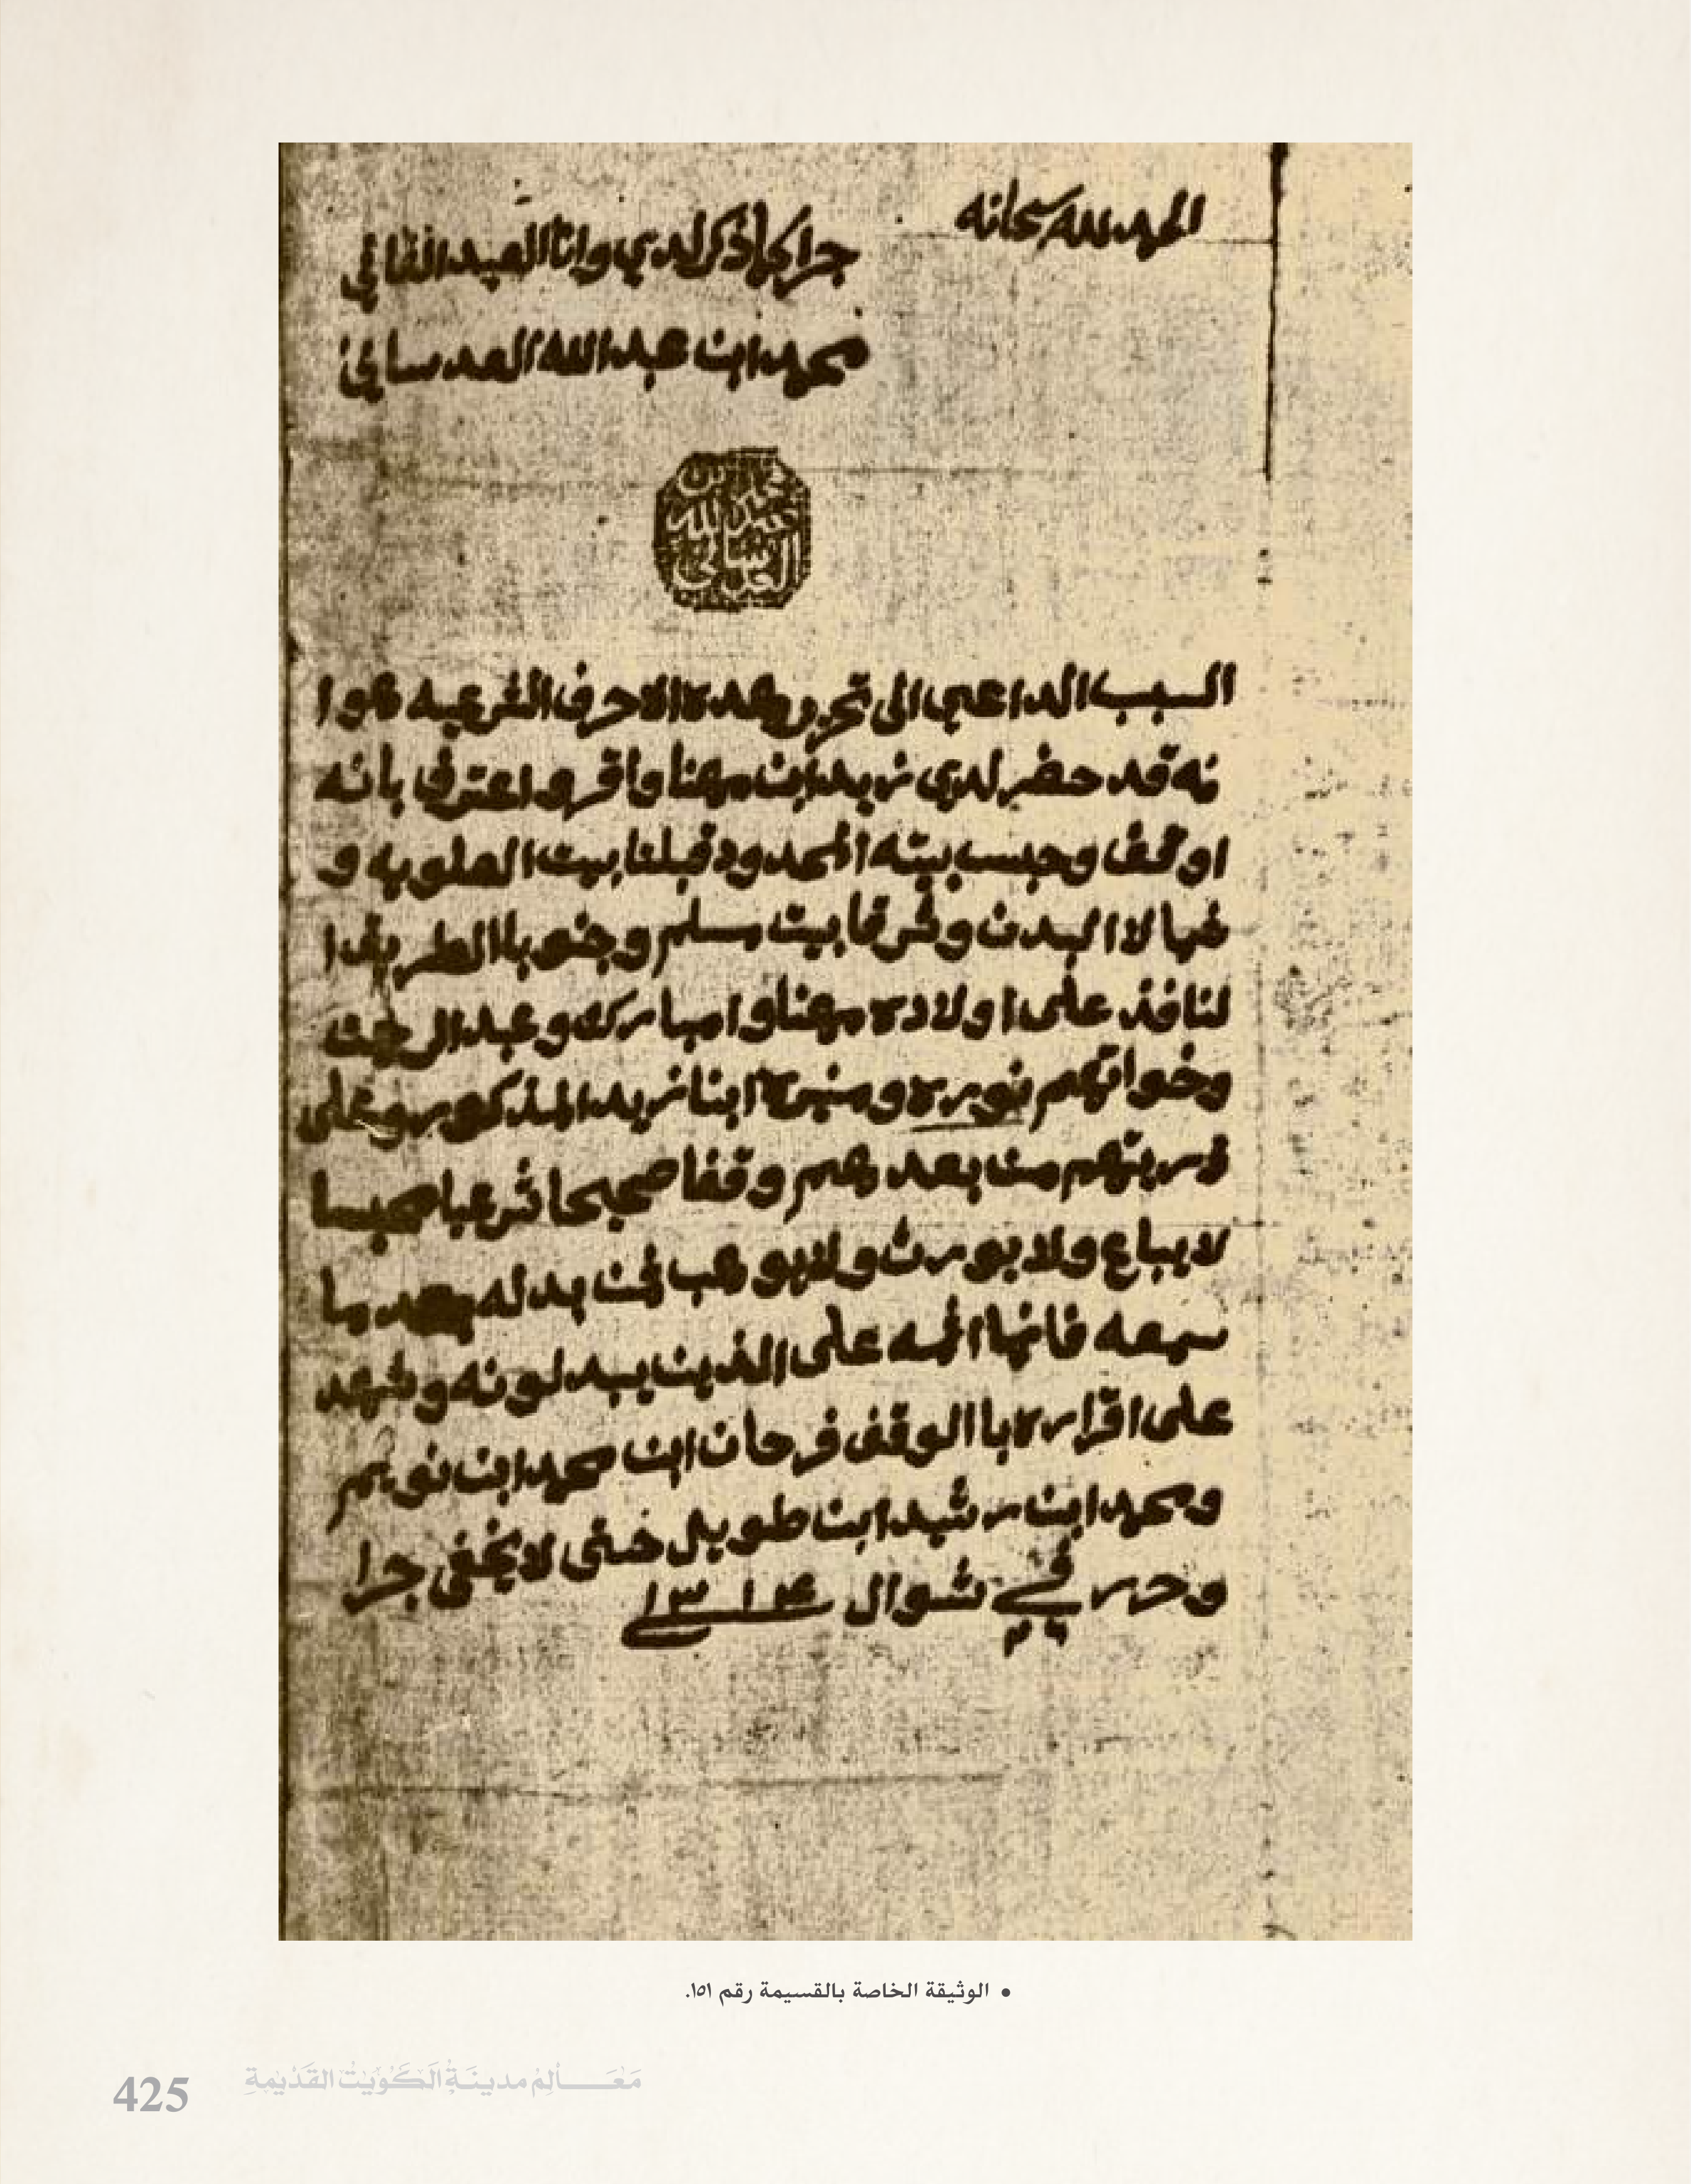 الحمد لله سبحانه
جرا كما ذكر لدي وانا العبد الفاني
محمد ابن عبد الله العدساني
محمد بن
عبد الله
العدساني
السبب الداعي الى تحرير هذه الاحرف الشرعيه هوا
نه قد حضر لدي زيد ابن مهنا واقر واعترف بانه
اوقف وحبس بيته المحدود قبلتا بيت العلويه و
شمالا البدن وشرقا بيت مسلم وجنوبا الطريق ا
لنافذ على اولاده مهنا وامبارك وعبد الرحمن
وخواتهم نوره ومنيره ابنا زيد المذكور وعلى
ذريتهم من بعدهم وقفا صحيحا شرعيا حبسا
لا يباع ولا يورث ولا يوهب فمن بدله بعد ما
سمعه فانما اثمه على الذين يبدلونه وشهد
على اقراره با الوقف فرحان ابن محمد ابن نويهم
ومحمد ابن رشيد ابن طويل حتى لا يخفى جرا
وحرر في شوال ١٣١٤
• الوثيقة الخاصة بالقسيمة رقم ١٥١.
مَعَالِمُ مدينَةِ الكُوَيْتِ القَدِيْمَةِ
425